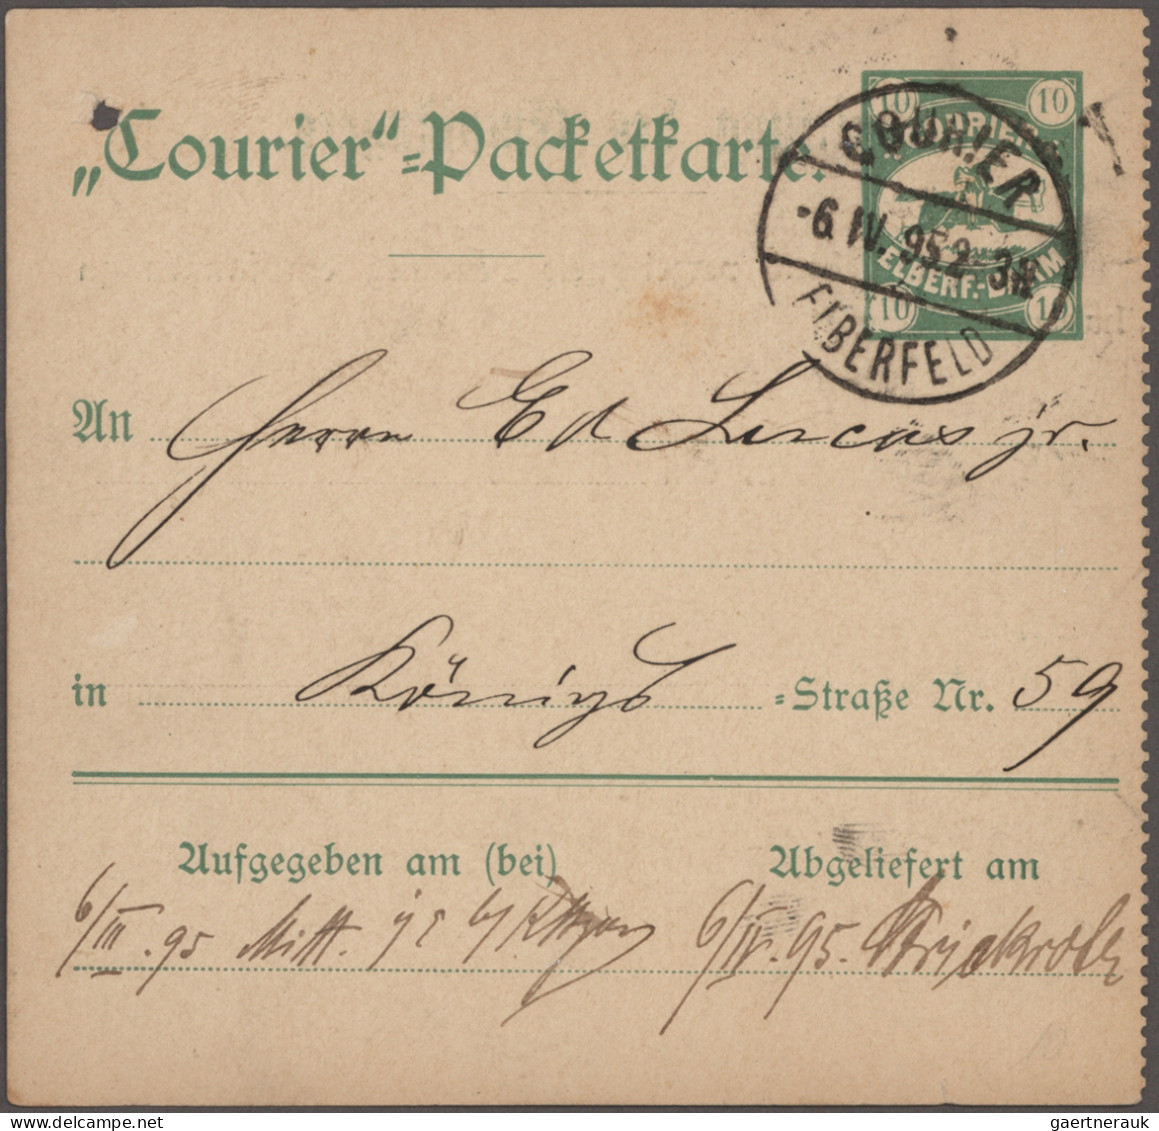 „Courier“=Packetkarte.
10 10
COURIER
ELBERF.-BARM
10 10
COURIER
-6. IV. 95. 2-3N.
ELBERFELD
An Herrn Ed Lucas jr.
in Königs =Straße Nr. 59
Aufgegeben am (bei) Abgeliefert am
6/III. 95 Mitt. 6/IV. 95.
gaertnerauk